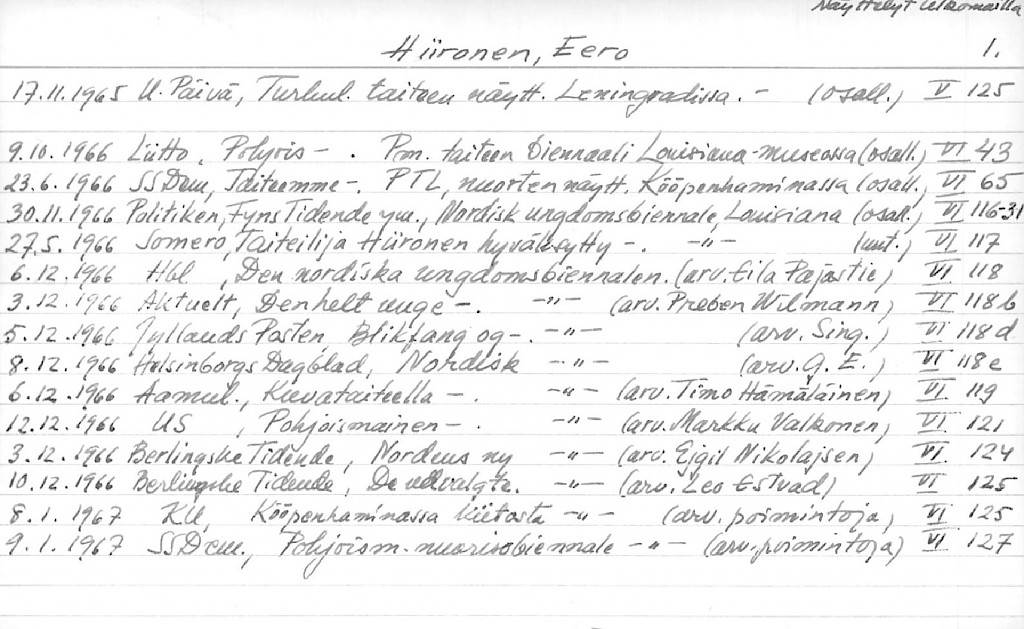 Näyttelyt ulkomailla
Hiironen, Eero 1.
17.11.1965 U. Päivä, Turkul. taiteen näytt. Leningradissa. - (osall.) V 125
9.10.1966 Liitto, Pohjois - . Pm. taiteen biennaali Louisiana-museossa (osall.) VI 43
23.6.1966 SSDem, Taiteemme -. PTL, nuorten näytt. Kööpenhaminassa (osall.) VI 65
30.11.1966 Politiken, Fyns Tidende ym., Nordisk ungdomsbiennale, Louisiana (osall.) VI 116-31
27.5.1966 Somero, Taiteilija Hiironen hyväksytty -. -"- (uut.) VI 117
6.12.1966 Hbl, Den nordiska ungdomsbiennalen. (arv. Eila Pajastie) VI 118
3.12.1966 Aktuelt, Den helt unge -. -"- (arv. Preben Wilmann) VI 118b
5.12.1966 Jyllands Posten, Blikfang og -. -"- (arv. Sing.) VI 118d
8.12.1966 Helsinborgs Dagblad, Nordisk -"- (arv. G. E.) VI 118e
6.12.1966 Aamul., Kuvataiteella -. -"- (arv. Timo Hämäläinen) VI 119
12.12.1966 US, Pohjoismainen -. -"- (arv. Markku Valkonen) VI 121
3.12.1966 Berlingske Tidende, Nordens ny -"- (arv. Ejgil Nikolajsen) VI 124
10.12.1966 Berlingske Tidende, De udvalgte. -"- (arv. Leo Estvad) VI 125
8.1.1967 KU, Kööpenhaminassa kiitosta -"- (arv. poimintoja) VI 125
9.1.1967 SSDem., Pohjoism. nuorisobiennale -"- (arv. poimintoja) VI 127